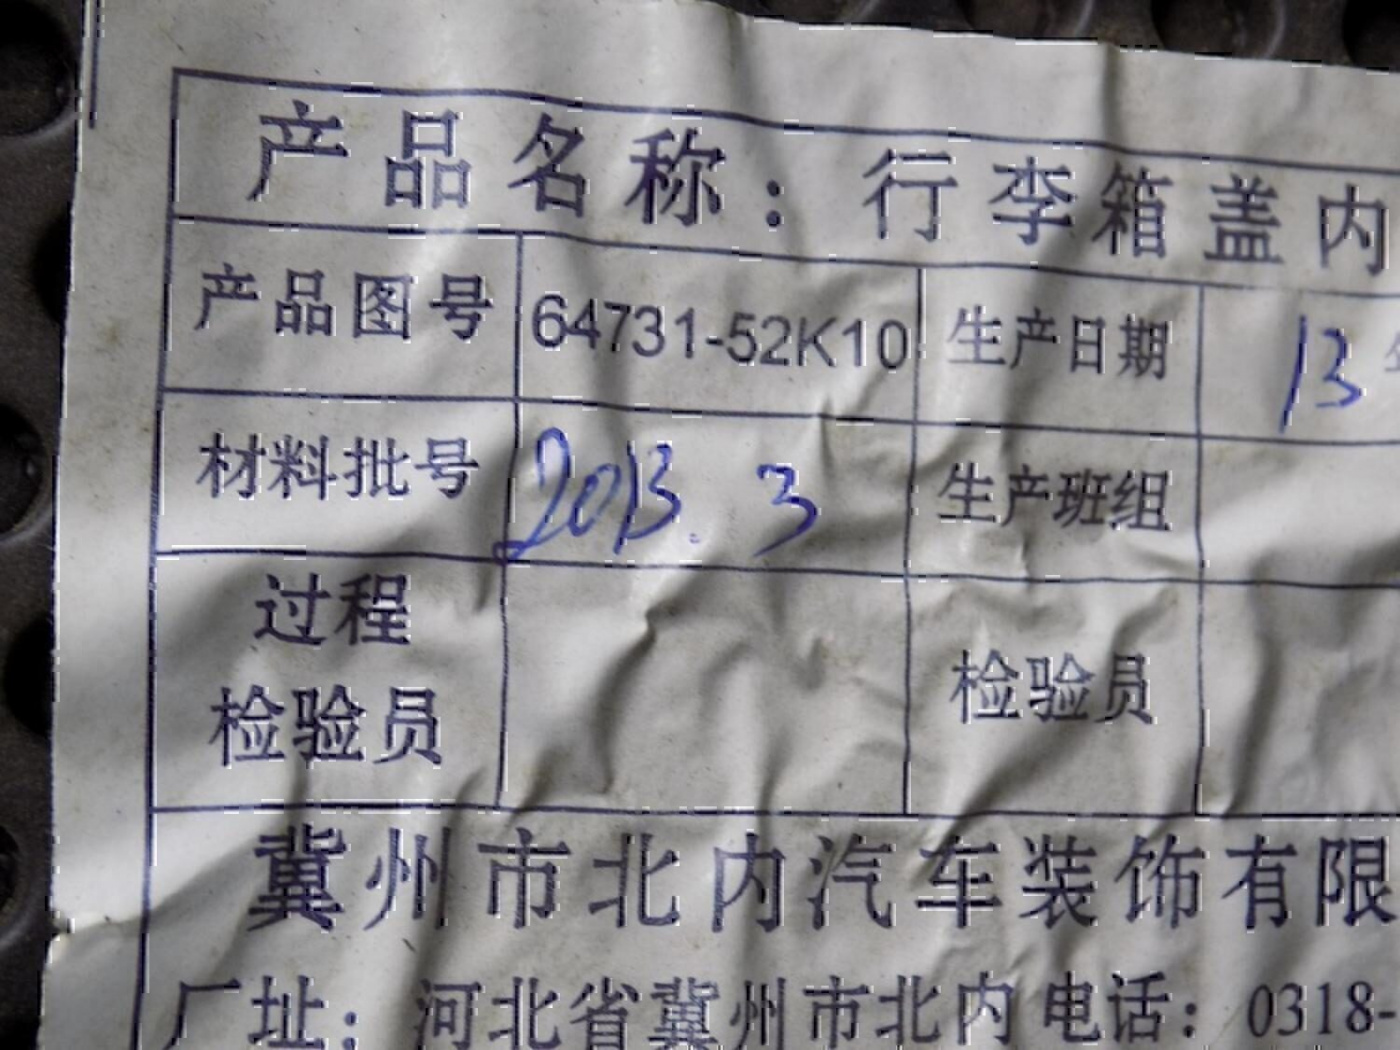 产品名称：行李箱盖内
产品图号 64731-52K10 生产日期 13
材料批号 2013.3 生产班组
过程
检验员 检验员
冀州市北内汽车装饰有限
厂址：河北省冀州市北内 电话：0318-